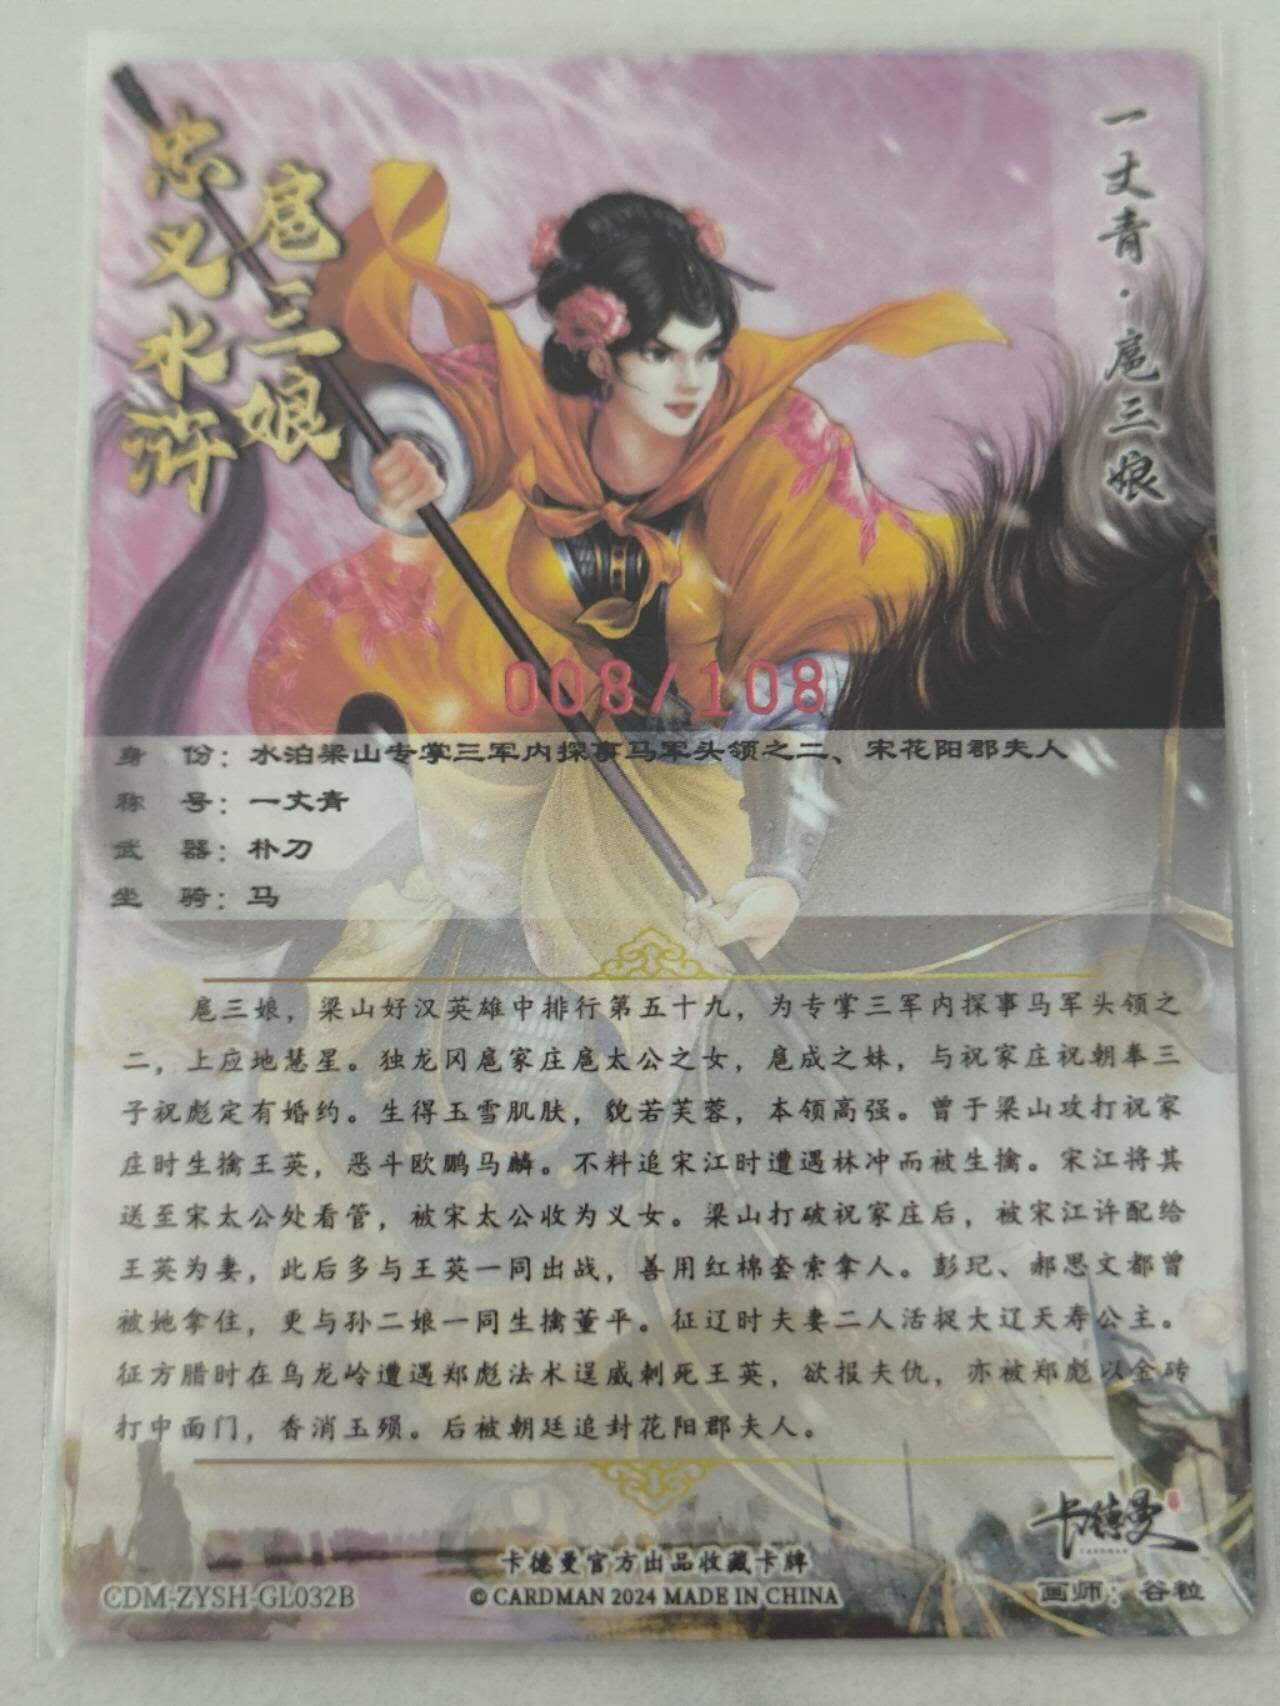 忠义水浒
扈三娘
一丈青·扈三娘
008/108
身 份：水泊梁山专掌三军内探事马军头领之二、宋花阳郡夫人
称 号：一丈青
武 器：朴刀
坐 骑：马
扈三娘，梁山好汉英雄中排行第五十九，为专掌三军内探事马军头领之
二，上应地慧星。独龙冈扈家庄扈太公之女，扈成之妹，与祝家庄祝朝奉三
子祝彪定有婚约。生得玉雪肌肤，貌若芙蓉，本领高强。曾于梁山攻打祝家
庄时生擒王英，恶斗欧鹏马麟。不料追宋江时遭遇林冲而被生擒。宋江将其
送至宋太公处看管，被宋太公收为义女。梁山打破祝家庄后，被宋江许配给
王英为妻，此后多与王英一同出战，善用红棉套索拿人。彭玘、郝思文都曾
被她拿住，更与孙二娘一同生擒董平。征辽时夫妻二人活捉大辽天寿公主。
征方腊时在乌龙岭遭遇郑彪法术逞威刺死王英，欲报夫仇，亦被郑彪以金砖
打中面门，香消玉殒。后被朝廷追封花阳郡夫人。
卡德曼
CARDMAN
卡德曼官方出品收藏卡牌
CDM-ZYSH-GL032B
© CARDMAN 2024 MADE IN CHINA
画师：谷粒